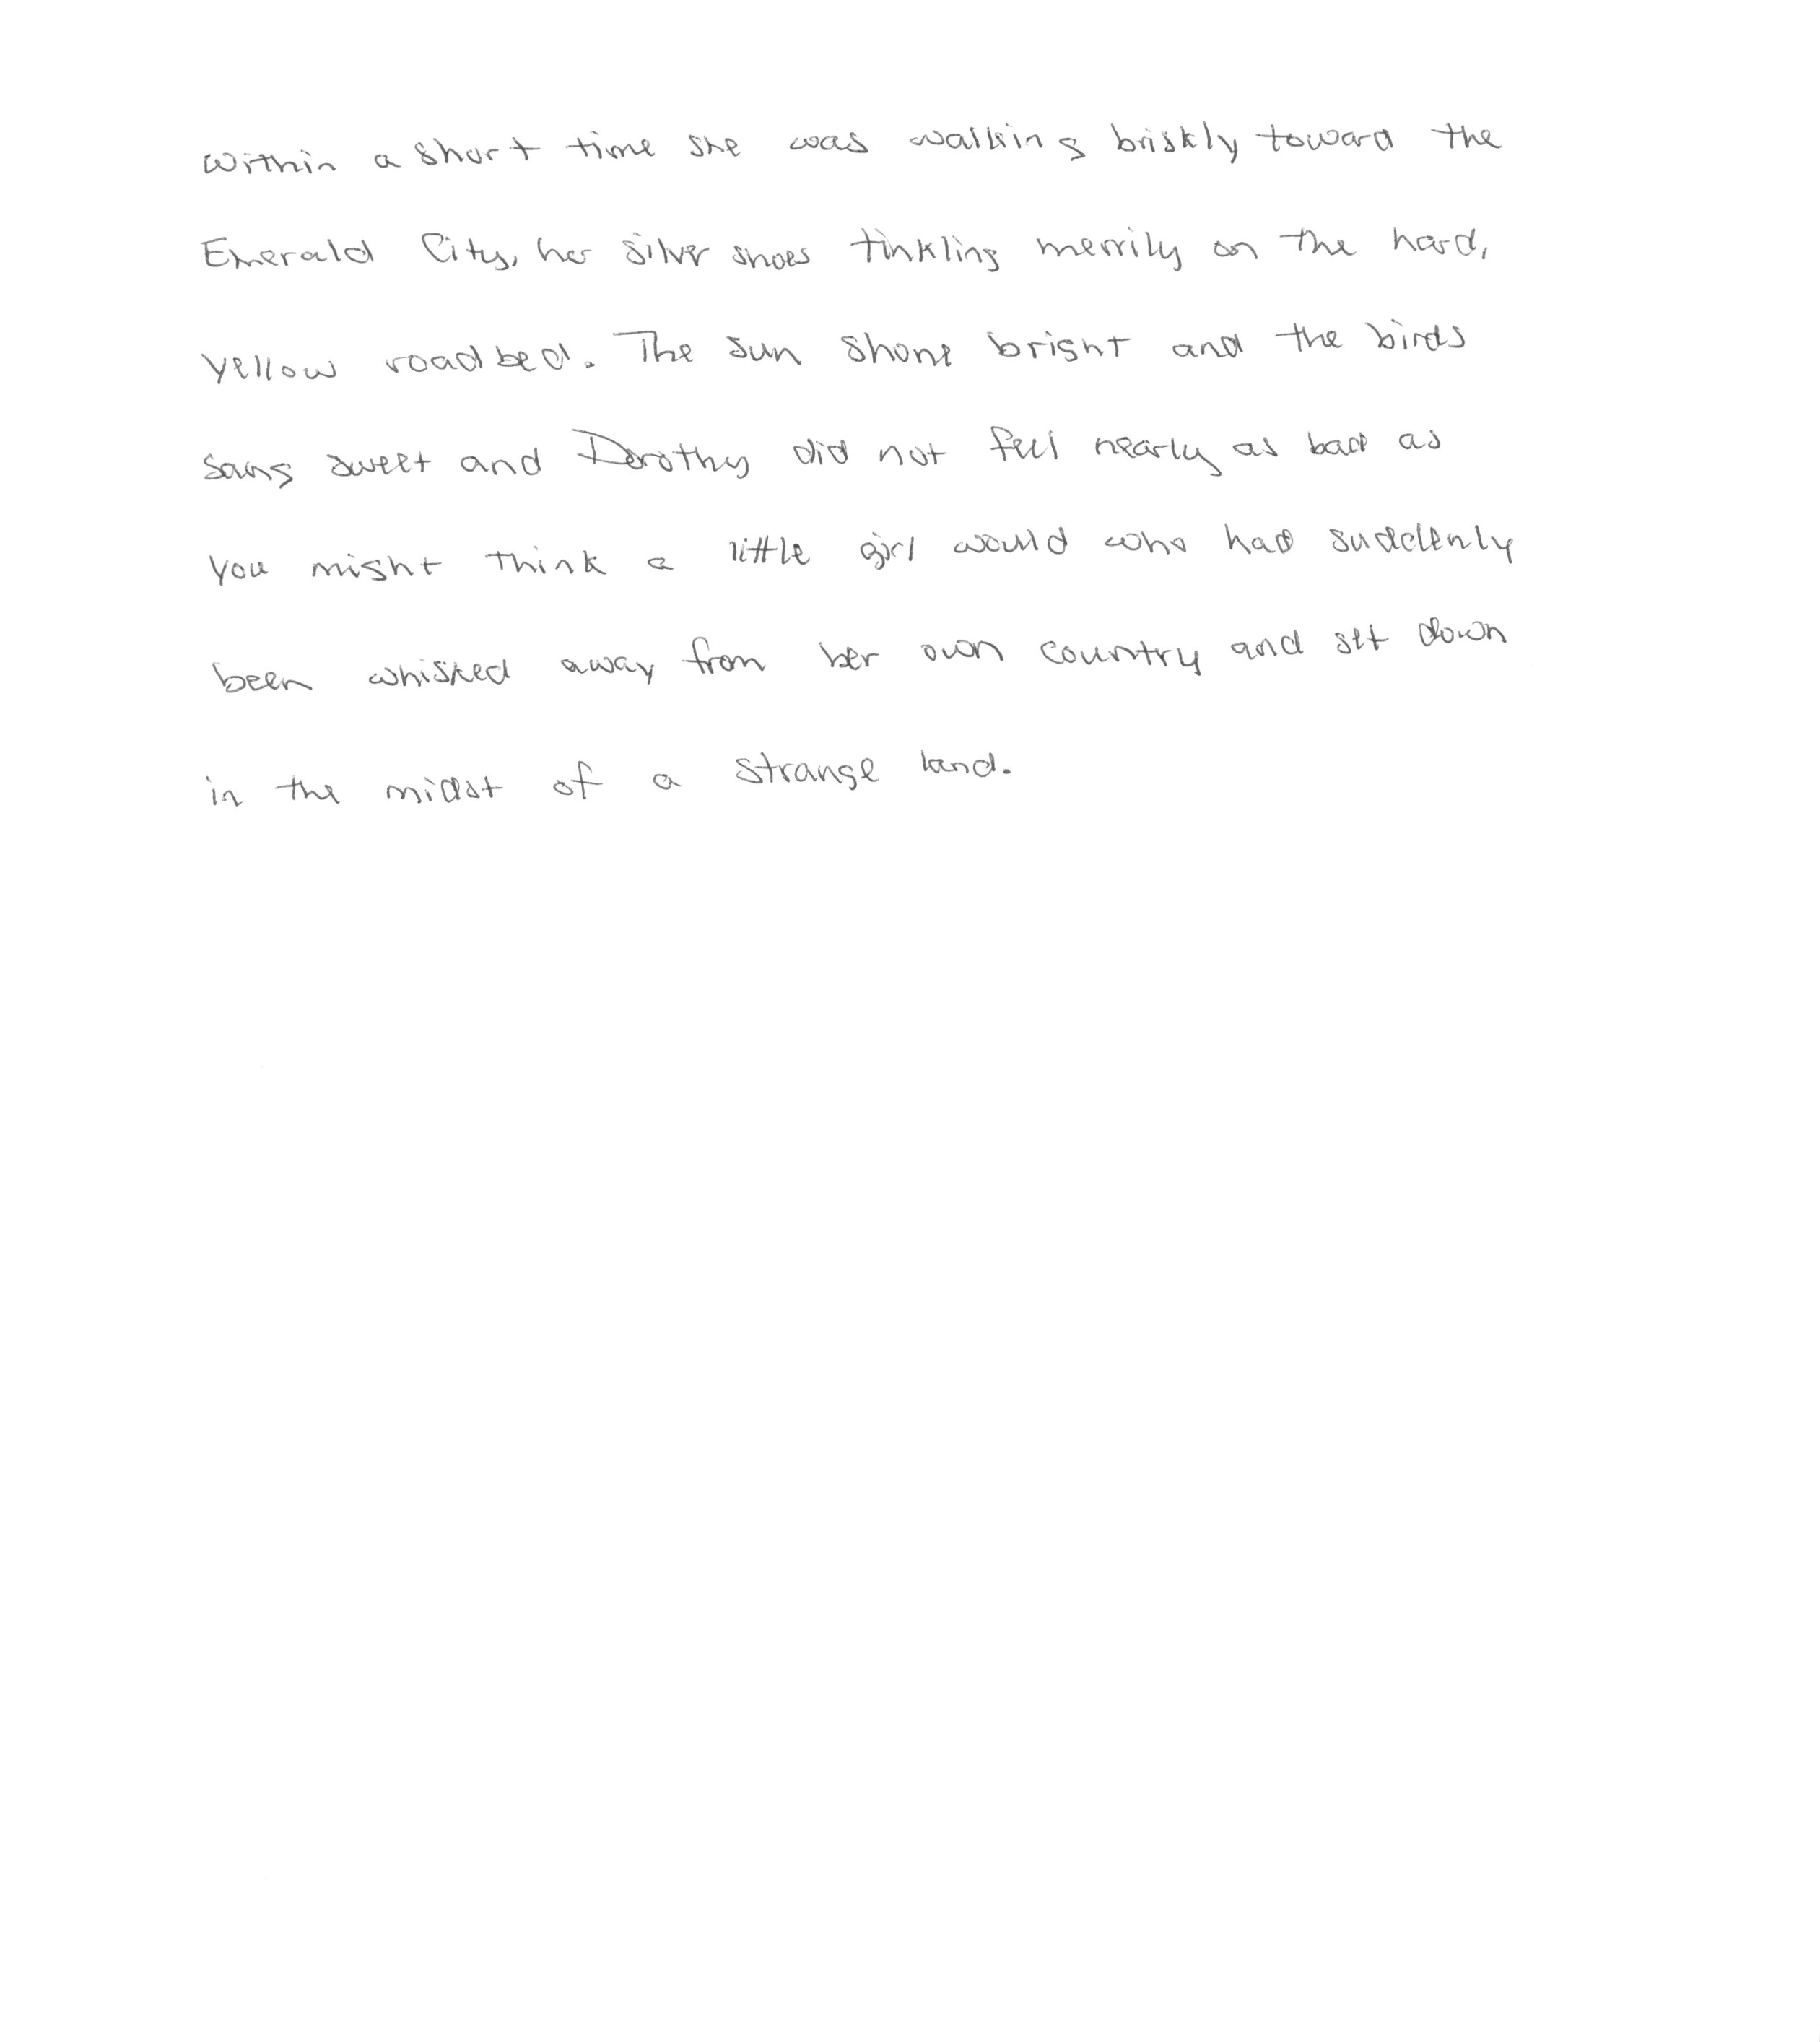 Within a short time she was walking briskly toward the
Emerald City, her silver shoes tinkling merrily on the hard,
yellow roadbed. The sun shone bright and the birds
sang sweet and Dorothy did not feel nearly as bad as
you might think a little girl would who had suddenly
been whisked away from her own country and set down
in the midst of a strange land.